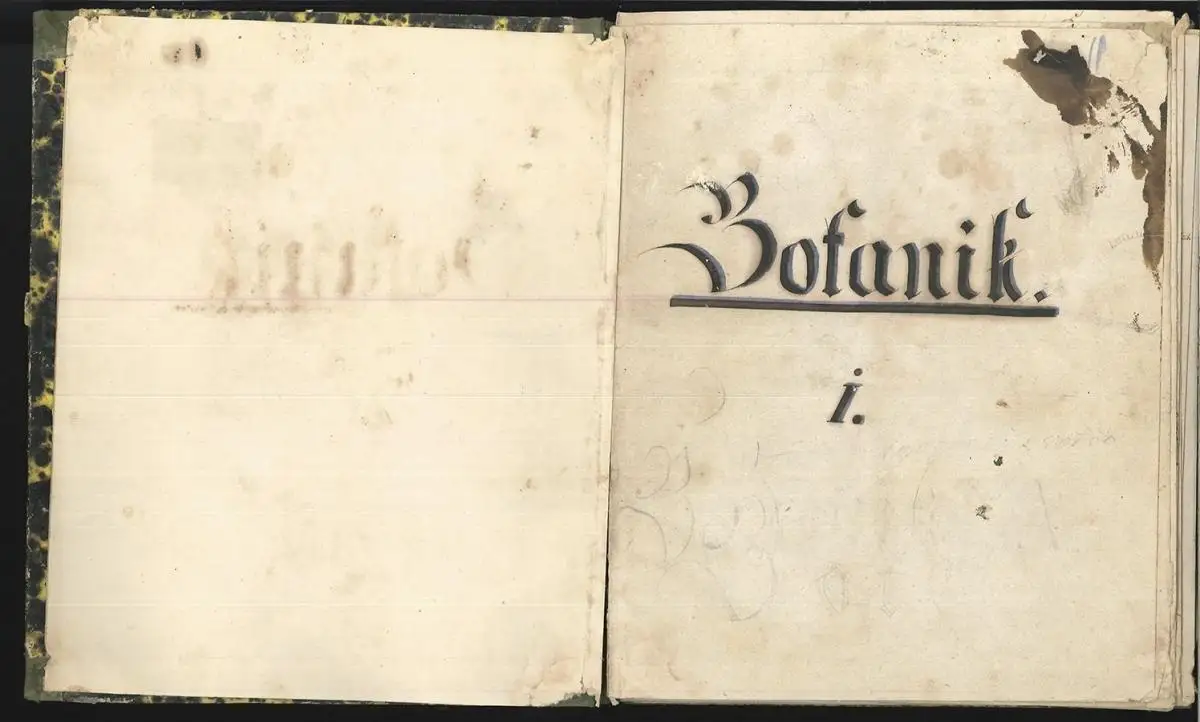 Botanik.
i.